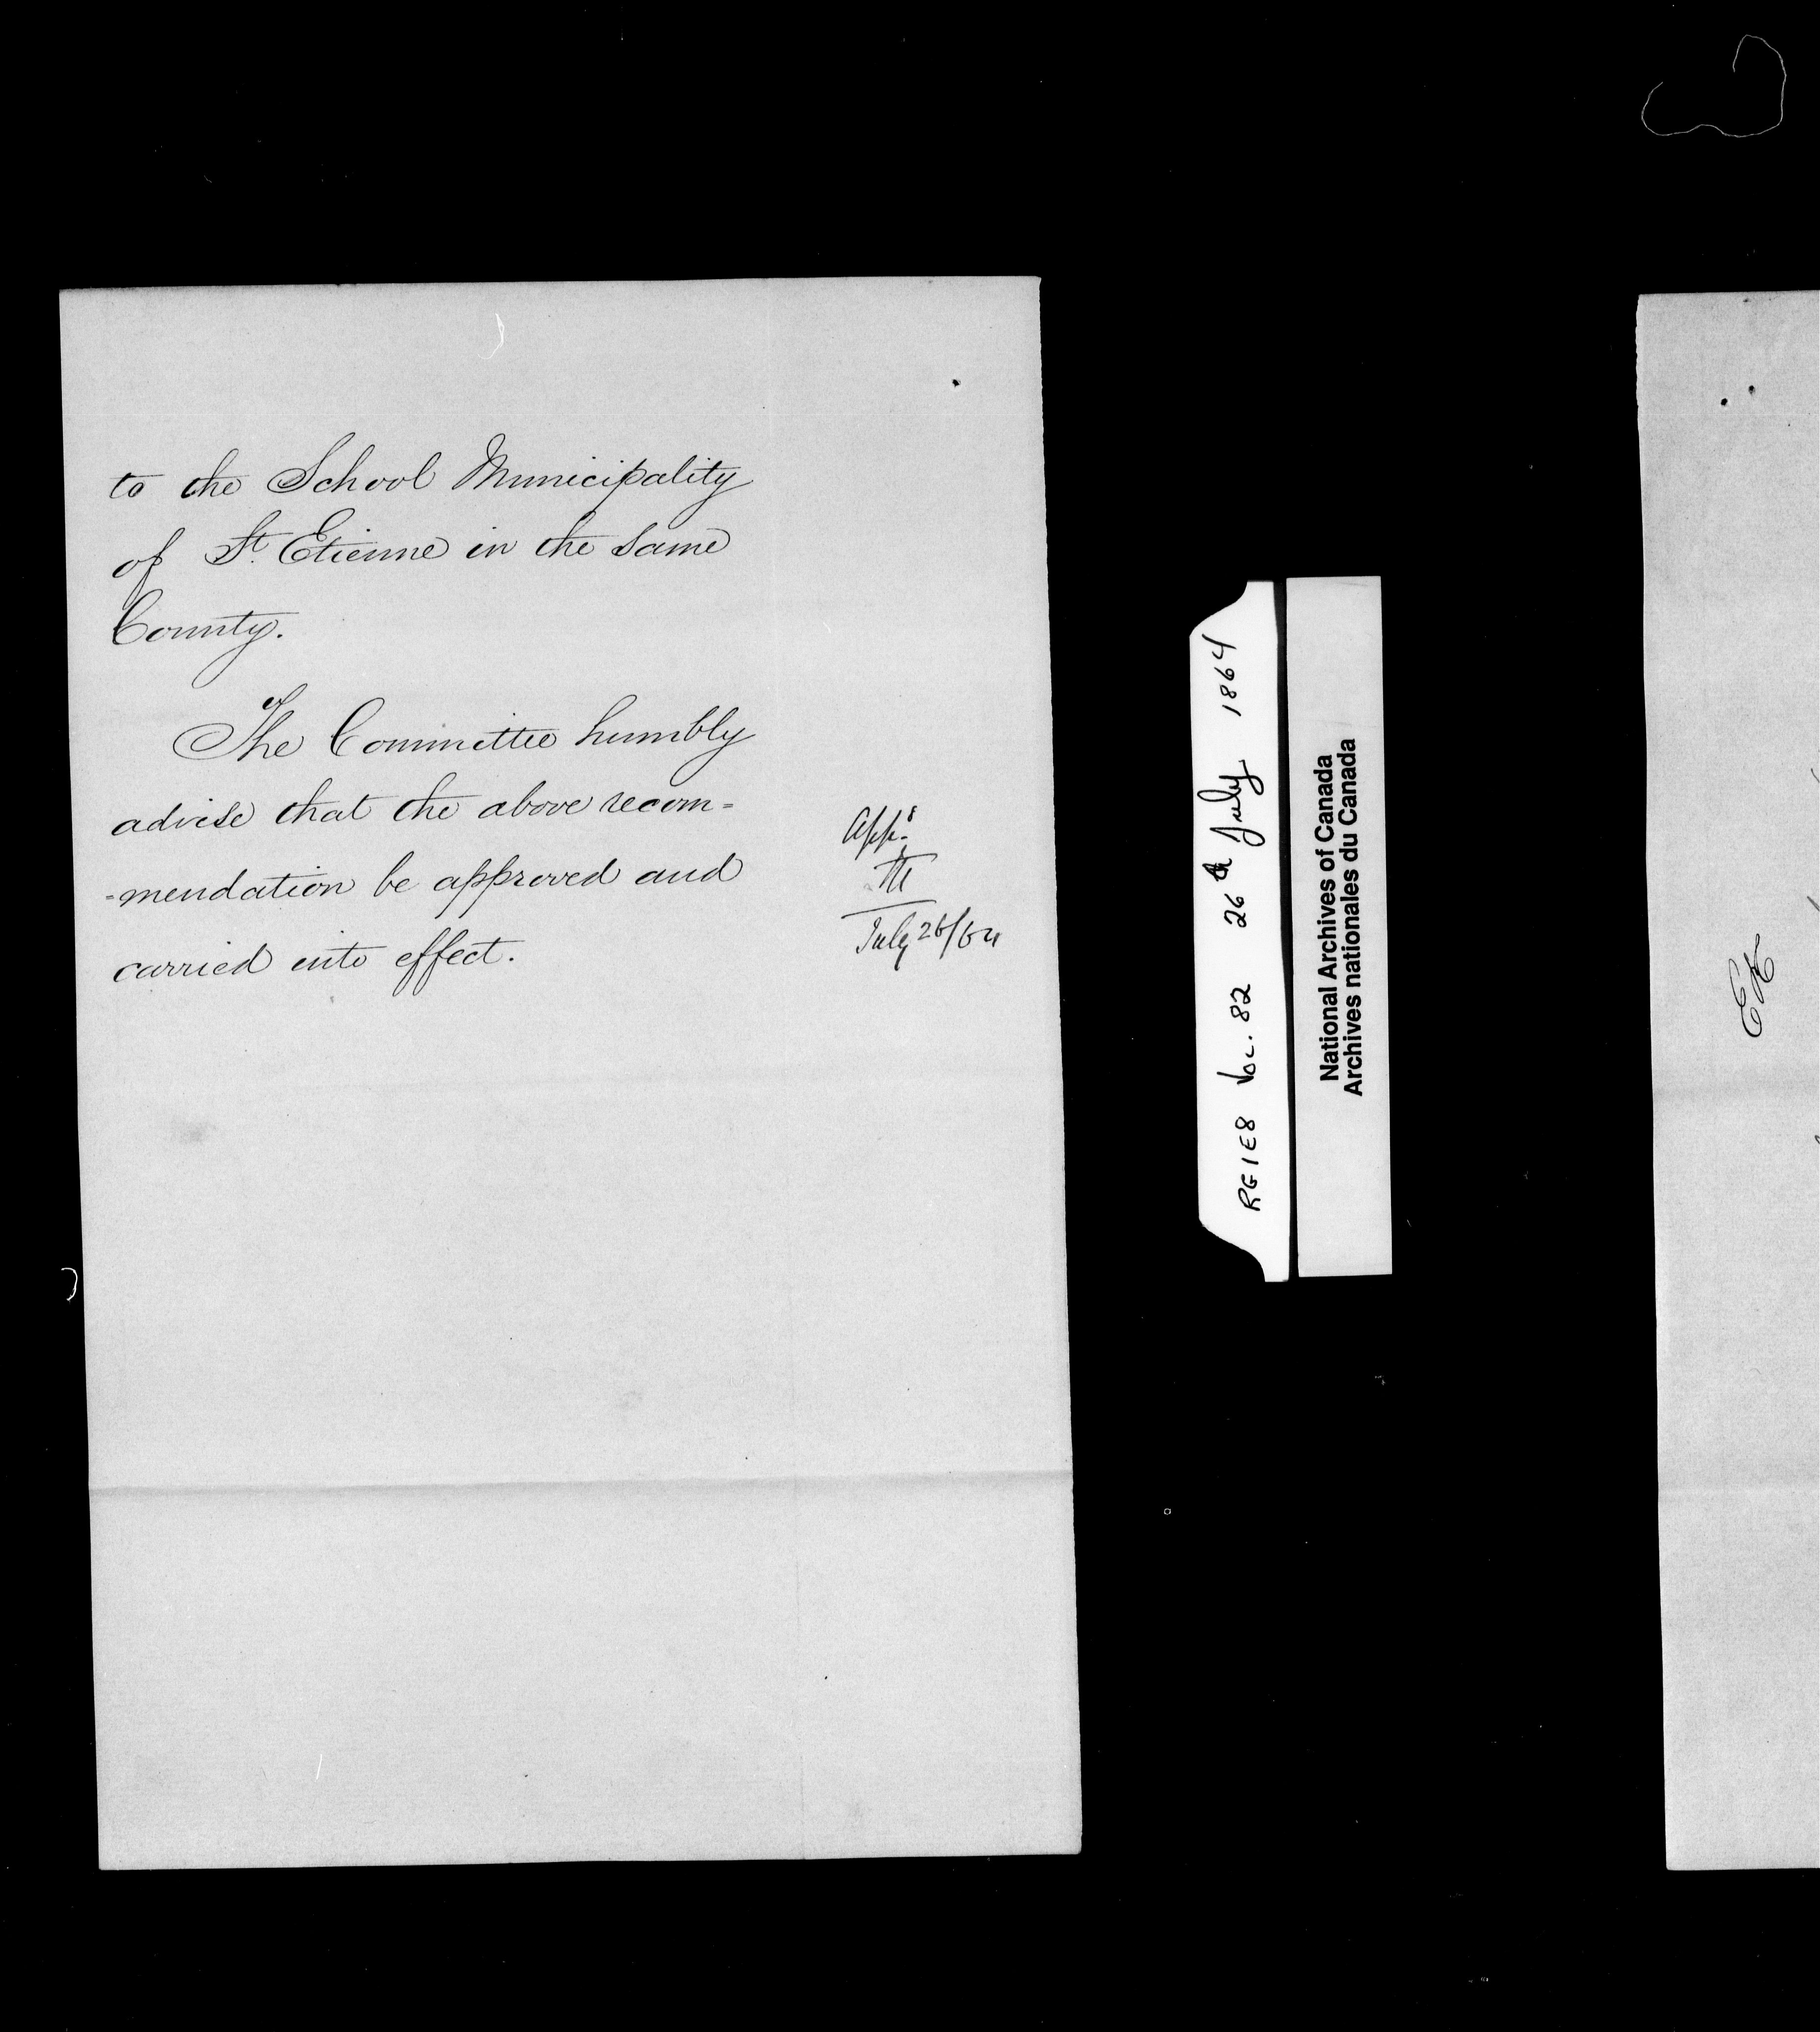 to the School Municipality
of St. Etienne in the same
County.
The Committee humbly
advise that the above recom=
=mendation be approved and
carried into effect.
App.d
July 26/64
RG1E8 VOL. 82 26th July 1864
National Archives of Canada
Archives nationales du Canada